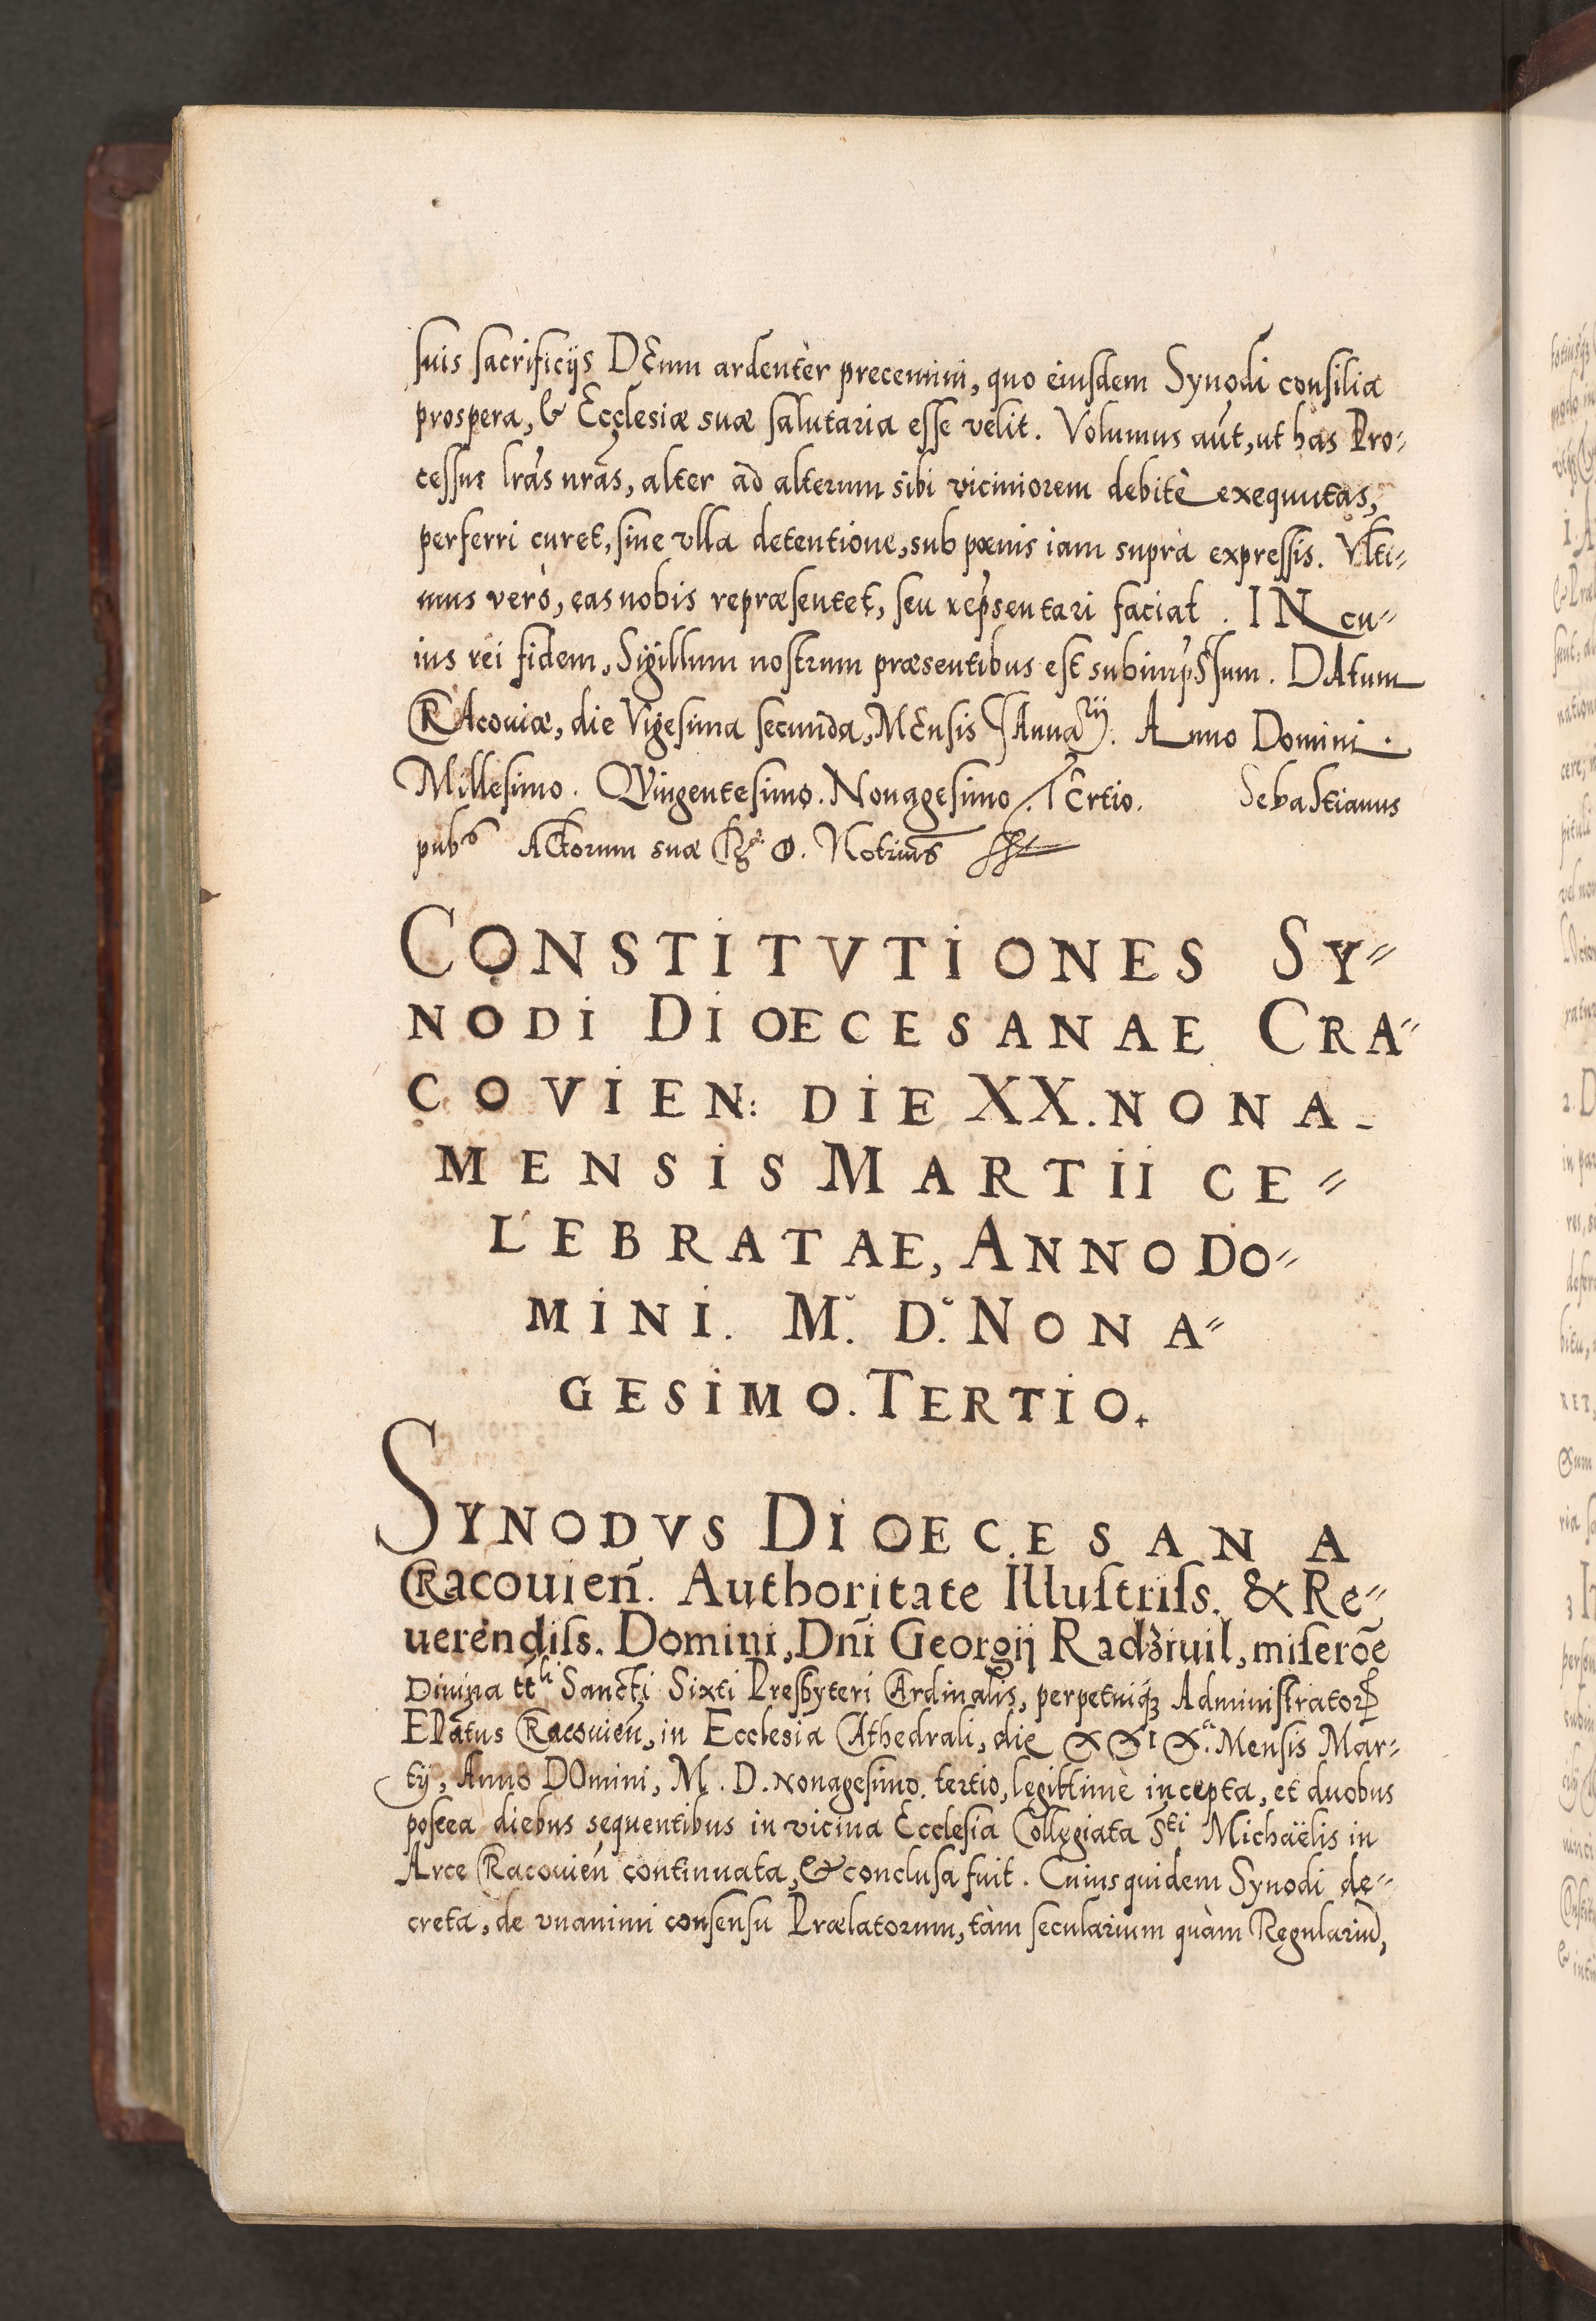 suis sacrificijs DEum ardentèr precemini, quo eiusdem Synodi consilia
prospera, & Ecclesiæ suæ salutaria esse velit. Volumus aut̃, ut has Pro=
cessus l̃ras nr̃as, alter ad alterum sibi viciniorem debitè exequutas,
perferri curet, sine vlla detentione, sub pœnis iam suprà expressis. Vlti=
mus verò, eas nobis repræsentet, seu rep̃sentari faciat. IN cu=
ius rei fidem, Sigillum nostrum præsentibus est subimp̃ssum. DAtum
CRAcouiæ, die Vigesima secunda, MEnsis IAnuarij. Anno Domini.
Millesimo. QVingentesimo. Nonagesimo. TErtio. Sebastianus
pub⁹ Actorum suæ Notriũs
CONSTITVTIONES SY=
NODI DIOECESANAE CRA=
COVIEN: DIE XX. NONA
MENSIS MARTII CE=
LEBRATAE, ANNO DO=
MINI. M. D. NONA=
GESIMO. TERTIO.
SYNODVS DIOECESANA
CRacouieñ. Authoritate Illustriss. & Re=
uerendiss. Domini, Dñi Georgij Radziuil, miserõe
Diuina tt̃li Sancti Sixti Presbyteri CArdinalis, perpetuiq; Administrator⁊
EPãtus CRacouieñ, in Ecclesia CAthedrali, die XXIXᵃ. Mensis Mar=
tij, Anno DOmini, M. D. Nonagesimo. tertio, legittimè incepta, et duobus
postea diebus sequentibus in vicina Ecclesia Collegiata Sᵗⁱ Michaëlis in
Arce CRacouieñ continuata, & conclusa fuit. Cuius quidem Synodi de=
creta, de vnanimi consensu Prælatorum, tàm secularium quàm Regulariũ,